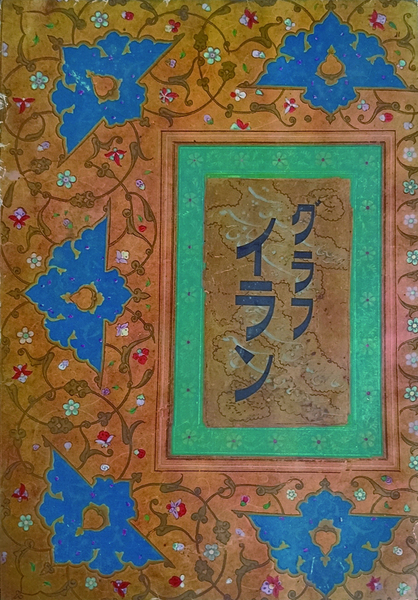 グラフ
イラン